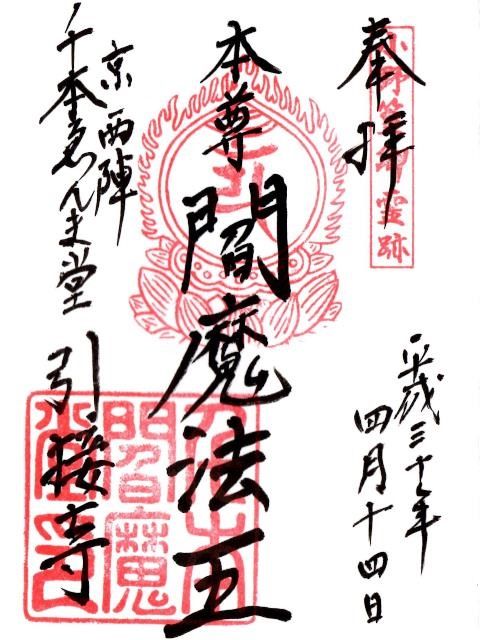 奉拝
小野篁卿霊跡
平成三十年
四月十四日
本尊
閻魔法王
京西陣
千本ゑんま堂
引接寺